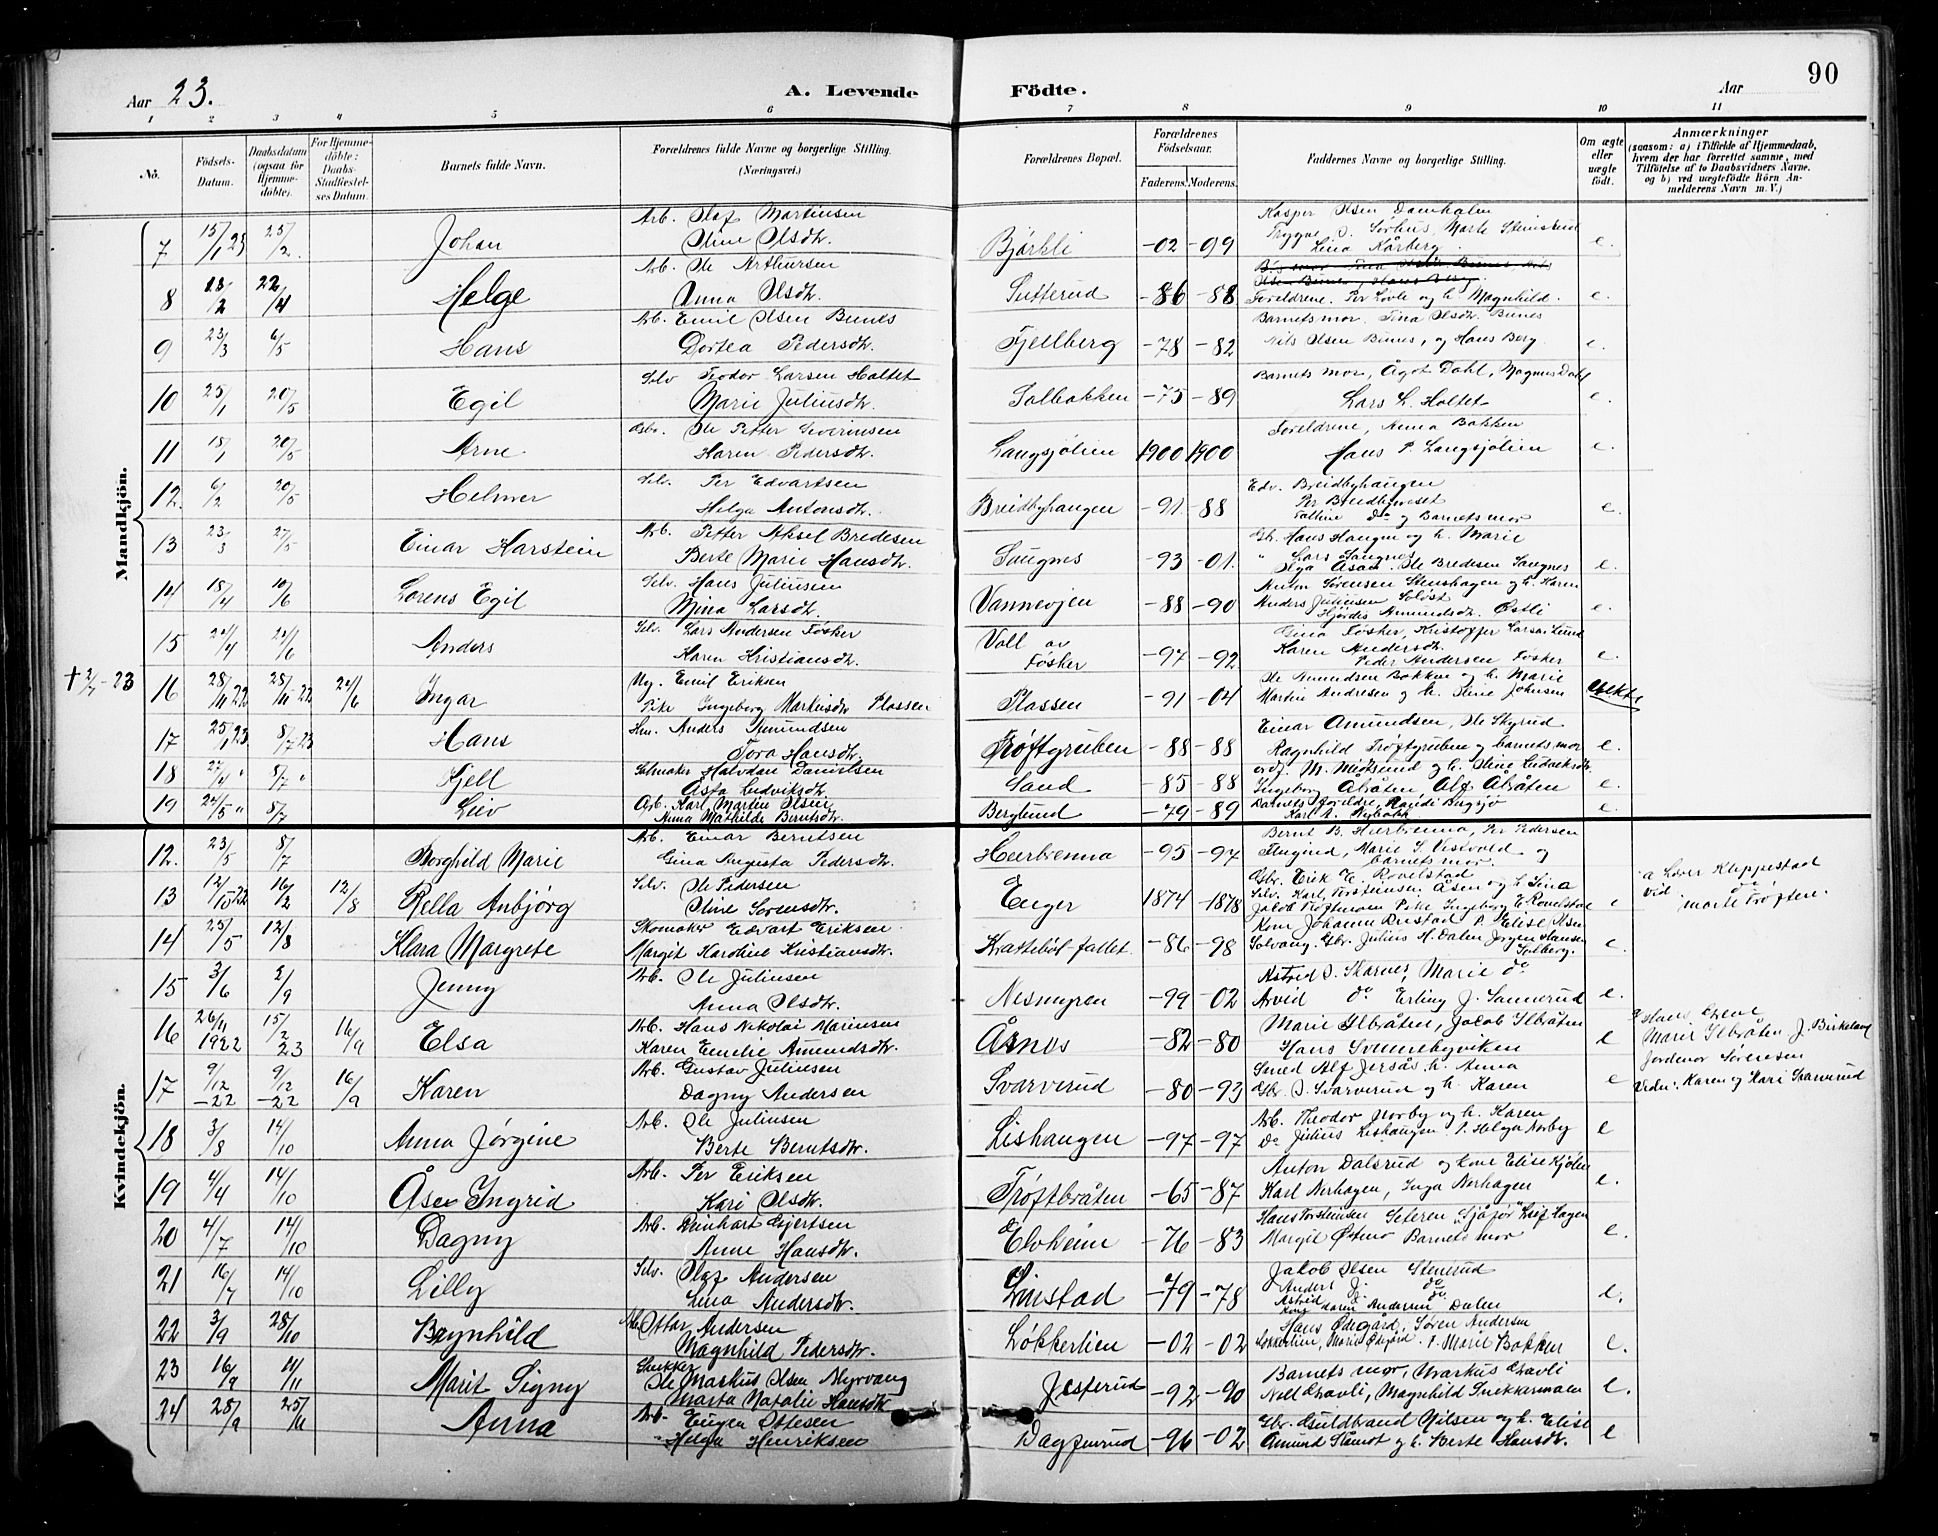 90
Aar 23. A. Levende Födte. Aar
1 2 3 4 5 6 7 8 9 10 11
No. Födsels-Datum. Daabsdatum (ogsaa for Hjemme-döbte). For Hjemme-döbte: Daabs-Stadfæstel-ses Datum. Barnets fulde Navn. Forældrenes fulde Navne og borgerlige Stilling. (Næringsvei.) Forældrenes Bopæl. Forældrenes Födselsaar. Faderens. Moderens. Faddernes Navne og borgerlige Stilling. Om ægte eller uægte födt. Anmærkninger (saasom: a) i Tilfælde af Hjemmedaab, hvem der har forrettet samme, med Tilföielse af to Daabsvidners Navne. og b) ved uægtefödte Börn An-melderens Navn m. V.)
Mandkjön.
7 15/1 23 25/2. Johan Arb. Olaf Martinsen
Oline Olsdtr. Bjørkli -02 -99 Kasper Olsen Damholm
Trygve O. Sørhus, Marte Stensrud
Lina Kårberg. e.
8 22/4 Helge Arb. Ole Arthursen
Anna Olsdtr. -86 -88
Foreldrene. Per Lovli og h. Magnhild. e.
9 23/3 6/5 Hans Arb. Emil Olsen Bunes
Dortea Pedersdtr. Fjellberg -78 -82 Barnets mor. Tina Olsdtr. Bunes
Nils Olsen Bunes, og Hans Berg. e.
10 25/1 20/5 Egil Selv. Teodor Larsen Holtet
Marie Juliusdtr. Solbakken -75 -89 Barnets mor, Ågot Dahl, Magnus Dahl
Lars L. Holtet e.
11 18/1 20/5 Arne Arb. Ole Petter Severinsen
Karen Pedersdtr. Langsjølien 1900 1900 Foreldrene, Anna Bakken
Hans P. Langsjølien e.
12. 6/2 20/5 Helmer Selv. Per Edvartsen
Helga Antonsdtr. Breidbyhaugen -91 -88 Edv. Breidbyhaugen
og Barnets mor e.
13 23/3 27/5 Einar Karstein Arb. Petter Aksel Bredesen
Berte Marie Hansdtr. Saugnes -93 -01. Gb. Hans Haugen og h. Marie
" Lars Saugnes
Ole Bredesen Saugnes e.
14 18/4 10/6 Lorens Egil Selv. Hans Juliusen
Mina Larsdtr. Vannevjen -88 -90 Anton Sørensen Stenshagen og h. Karen
Anders Juliusen
Hjørdis Amundsdtr. Østli e.
15 22/4 Anders Selv. Lars Andersen Føsker
Karen Kristiansdtr. Voll av
Føsker -97 -92 Gina Føsker, Kristoffer Larsen Lund
Karen Andersdtr.
Peder Andersen Føsker e.
16 28/11 22 28/11 22 24/6 Ingar Ug. Emil Eriksen
Pike Ingeborg Markusdtr Plassen Plassen -91 -04 Ole Amundsen Bakken og h. Marie
Martin Andresen og h. Stine Johnsen Uekte
17 25/1 23 8/7 23 Hans Anders Amundsen
Tora Hansdtr. Trøftgruben -88 -88 Einar Amundsen, Ole Skyrud
Ragnhild Trøftgruben og barnets mor e.
18 27/4 " 8/7 " Kjell Salmaker Halvdan Danielsen
Åsta Ludviksdtr. Sand -85 -88 M. Midtsund og h. Stine Ludviksdtr.
Ingeborg Alråten Alf Alråten e.
19 24/5 " 8/7 Leiv Arb. Karl Martin Olsen
Anna Mathilde Berntsdtr. Berglund -79 -89 Barnets foreldre, Randi Bergsjø
Karl A. Nybakk e.
Kvindekjön.
12. 23/5 8/7 Borghild Marie Arb. Einar Berntsen
Gina Augusta Pedersdtr. Heerbrenna -95 -97 Bernt B. Heerbrenna, Per Pedersen
Marie S. Vestvold og
barnets mor.
13 12/10 22 16/2 12/8 Rella Anbjørg Selv. Ole Pedersen
Oline Sørensdtr. Enger 1874 -1878 Gbr. Erik E. Rovelstad
Selv. Karl Torsteinsen Åsen og h. Lina
Jakob Trøftmoen Pike Ingeborg E. Rovelstad e
14 25/5 12/8 Klara Margrete Skomaker Edvart Eriksen.
Margit Karoline Kristiansdtr. Krattebøl-fallet -86 -98 Kone Johanna P. Elise Olsen
Solvang. Gbr. Julius H. Dalen Jørgen Hansen
Solberg. e.
15 3/6 2/9 Jenny Arb. Ole Juliusen
Anna Olsdtr. Nesmyren -99 -02 Astrid O. Skarnes, Marie do
Arvid do Erling J. Sannerud e.
16 26/11 1922 15/2 23 16/9 Elsa Arb. Hans Nikolai Marinsen
Karen Emelie Amundsdtr. Åsnes -82 -80 Marie Ilbråten, Jacob Ilbråten
Hans Sønnebyviken e Marie Ilbråten J. Birkeland
17 9/12 -22 9/12 -22 16/9 Karen Arb. Gustav Juliusen
Dagny Andersen Svarverud -80 -93 Smed Alf Jerså h. Anna
Gbr. O. Svarverud og h. Karen e Jordmor Sørensen
Vidner: Karen og Kari Svarverud
18 3/8 14/10 Anna Jørgine Arb. Ole Juliusen
Berte Berntsdtr. Lishaugen -97 -97 Arb. Theodor Norby og h. Karen
Do Julius Lishaugen P. Helga Norby e
19 4/4 14/10 Åse Ingrid Arb. Per Eriksen
Kari Olsdtr. Trøftbråten -65 -87 Anton Dalsrud og kone Elise Kjølen
Karl Nerhagen, Inga Nerhagen e.
20 4/7 14/10 Dagny Arb. Reinhart Gjertsen
Anne Hansdtr. Elvheim -76 -83 Hans Torsteinsen Seteren Sjåfør Leif Hagen
Margit Østmo Barnets mor e.
21 16/7 14/10 Lilly Selv. Olaf Andersen
Lina Andersdtr. Linstad -79 -78 Jakob Olsen Stenerud
Anders J. do
Astrid do
Kone Karen Andersen Dalen e.
22 3/9 28/10 Brynhild Arb. Ottar Andersen
Magnhild Pedersdtr. Løkkerlien -02 -02 Hans Ødegård, Søren Andersen
Løkkerlien, Marie Ødegård. P. Marie Bakken e.
23 16/9 11/11 Marit Signy Snekker
Ole Markus Olsen Myrvang
Marta Natalie Hansdtr Jesterud -92 -90 Barnets mor, Markus Gravli
Nell Gravli, Magnhild Snekkermoen e.
24 28/9 25/11 Anna Arb. Eugen Ottesen
Helga Henriksen Dagfinrud -96 -02 Gbr. Guldbrand Nilsen og h. Elise
Amund Slåmot og h. Berte Hansdtr. e